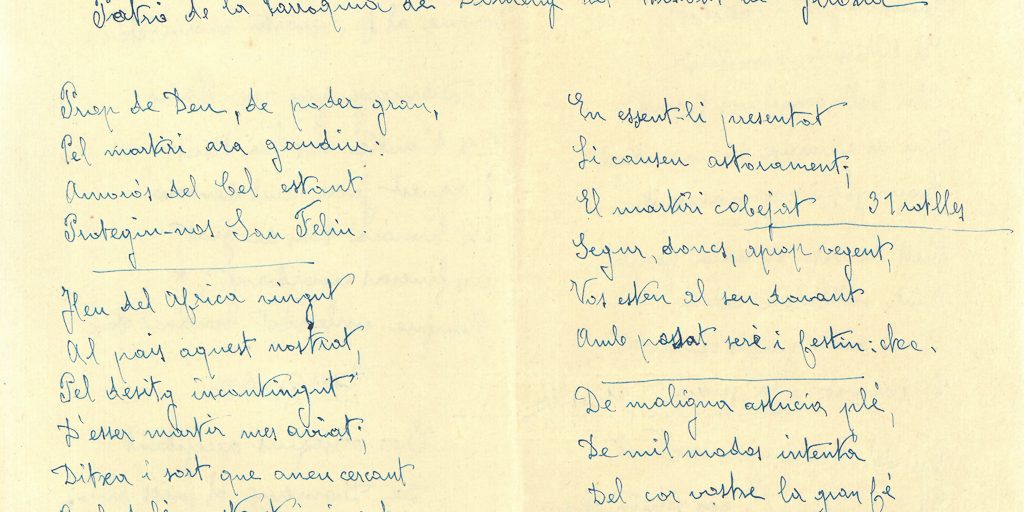 Patró de la Parroquia de
Prop de Deu, de poder gran,
Pel martiri ara gaudiu:
Amorós del Cel estant
Protegiu-nos San Feliu.
Heu del Africa vingut
Al pais aquest nostrat,
Pel desitg incontingut
D'esser martir mes aviat;
Ditxa i sort que aneu cercant
En essent-li presentat
Li causeu astorament;
El martiri cobejat 31 ratlles
Segur, doncs, aprop vegent,
Vos esteu al seu davant
Amb posat seré i festiu: ckc.
De maligna astucia plé,
De mil modos intenta
Del cor vostre la gran fé